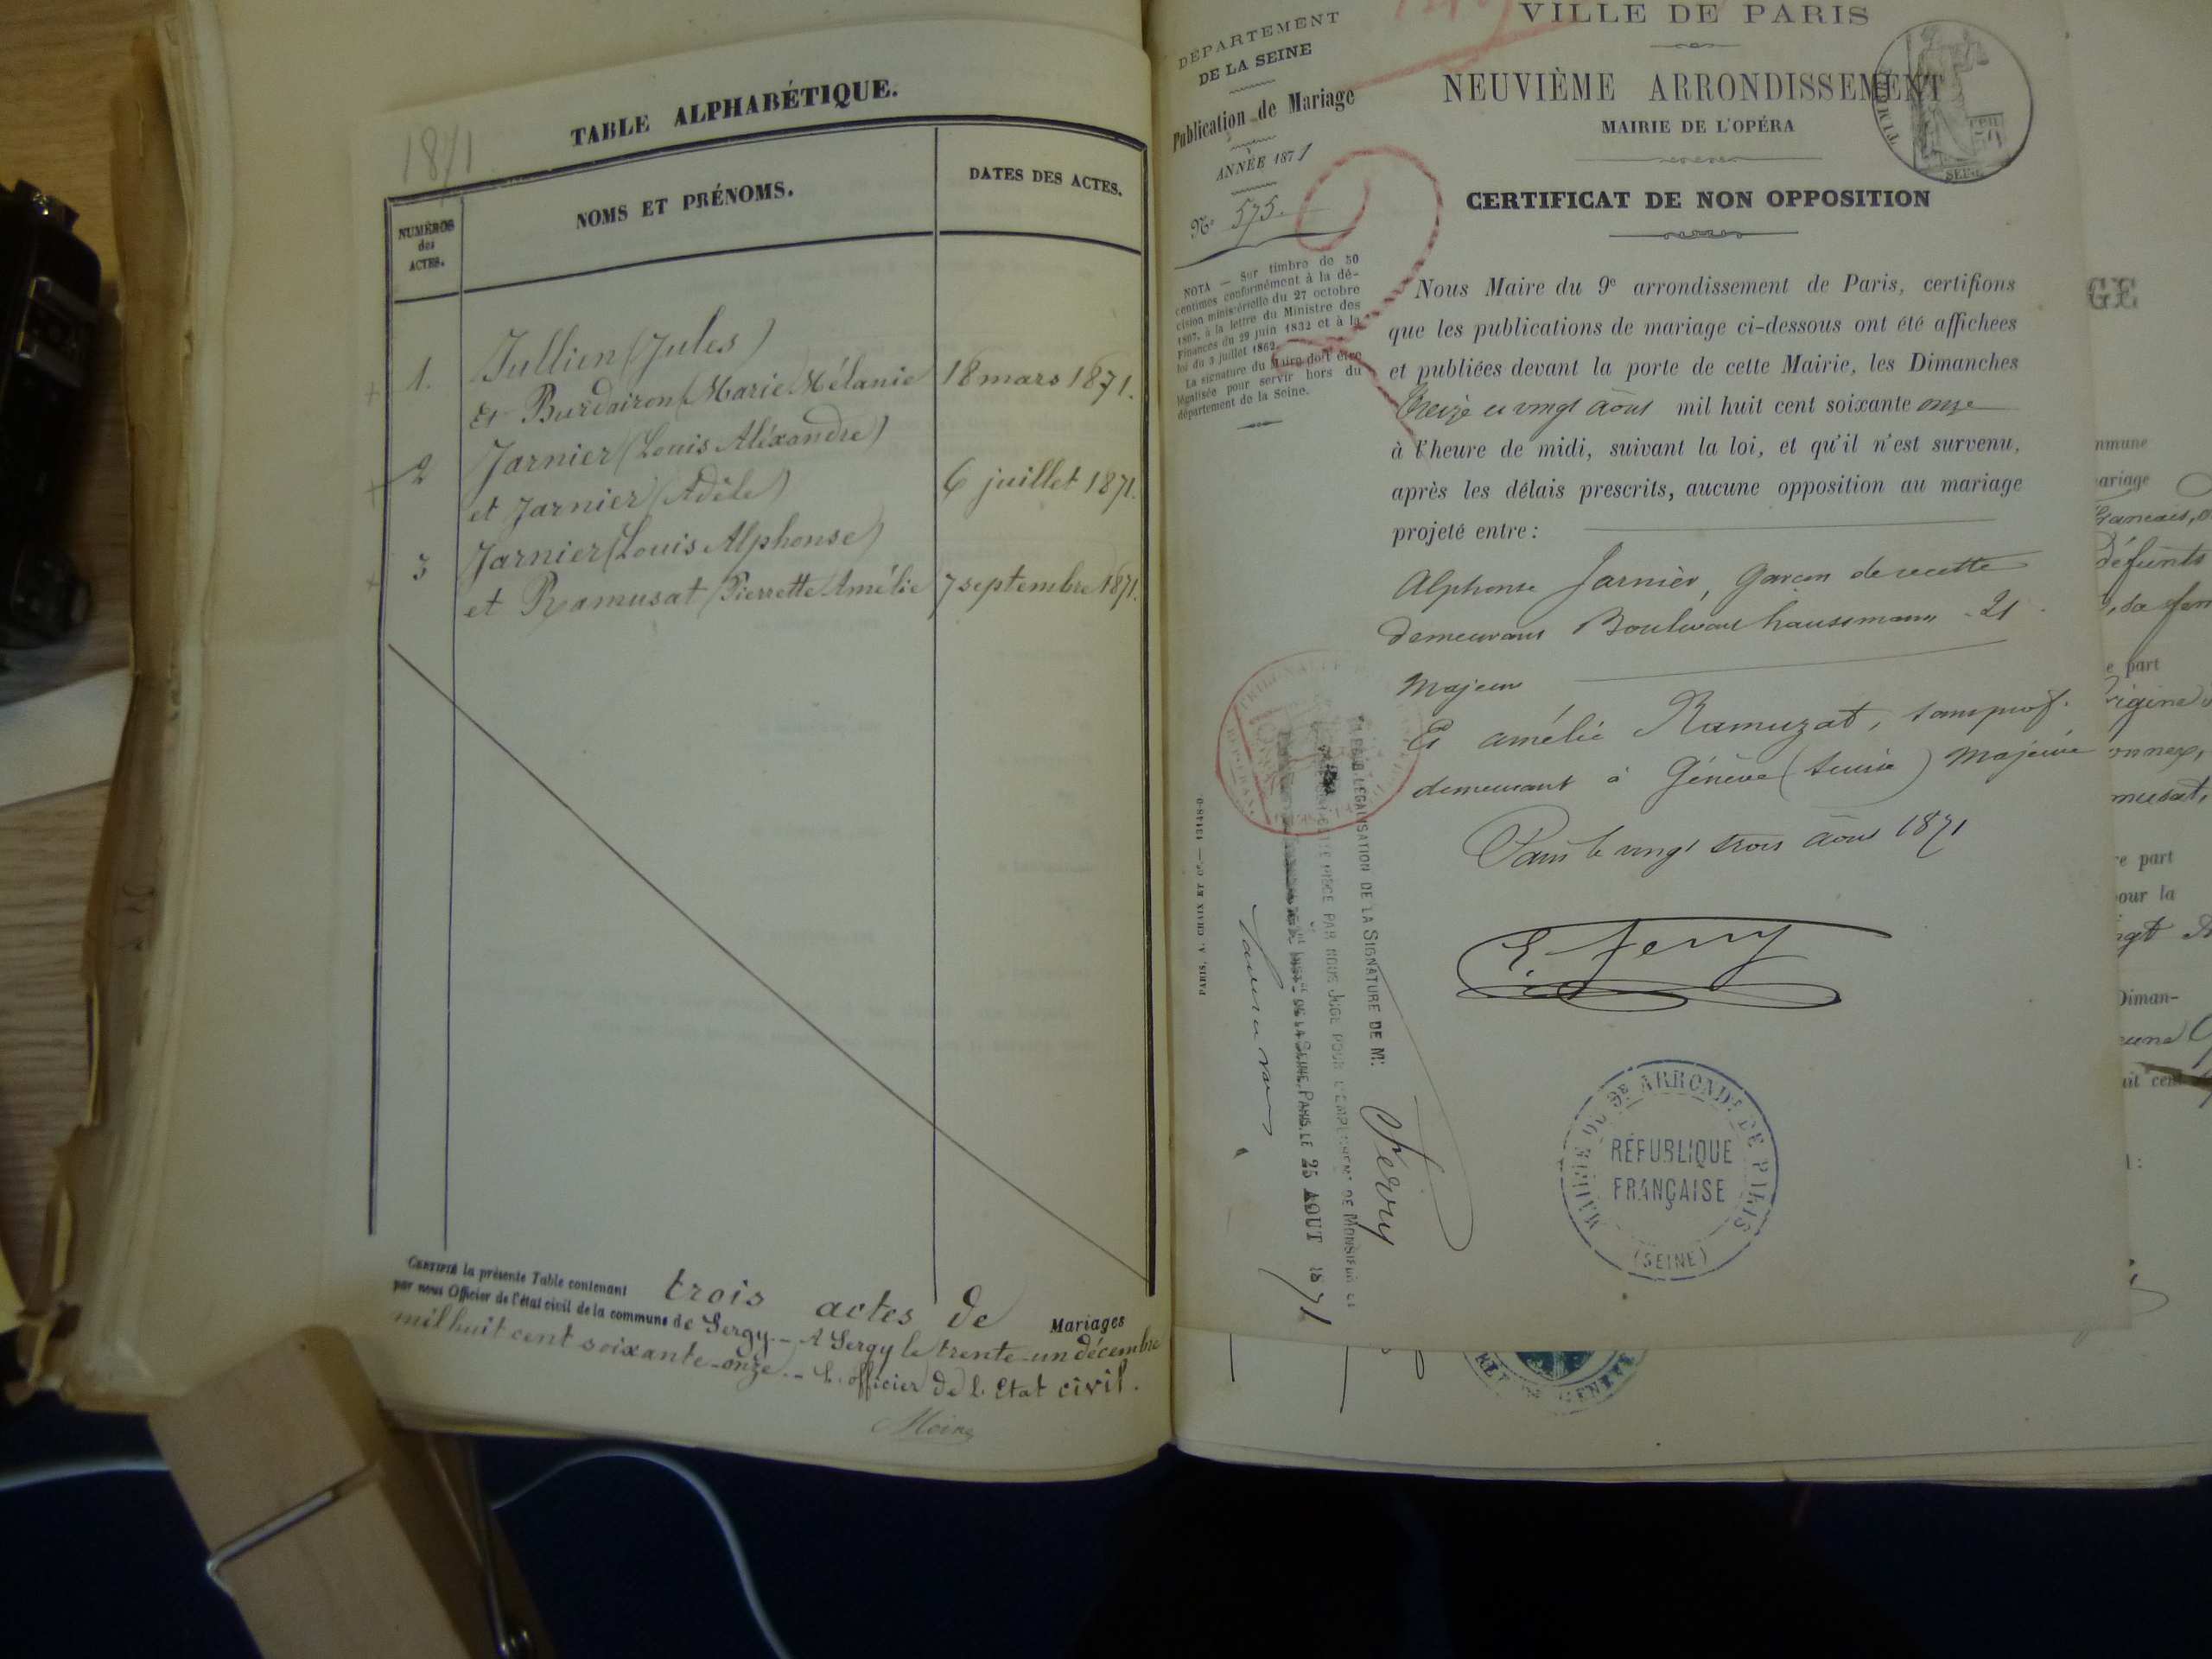 1871
TABLE ALPHABÉTIQUE.
NUMÉROS
des
ACTES.
NOMS ET PRÉNOMS.
DATES DES ACTES.
1. Jullien (Jules)
et Burdairon (Marie Mélanie 18 mars 1871.
2 Jarnier (Louis Aléxandre)
et Jarnier (Adèle) 6 juillet 1871.
3 Jarnier (Louis Alphonse)
et Ramusat (Pierrette Amélie 7 septembre 1871.
CERTIFIÉ la présente Table contenant trois actes de Mariages
par nous Officier de l'état civil de la commune de Sergy. - A Sergy le trente-un décembre
mil huit cent soixante-onze. - L'officier de l'Etat civil.
DÉPARTEMENT
DE LA SEINE
Publication de Mariage
ANNÉE 1871
No 575.
NOTA — Sur timbre de 50
centimes conformément à la dé-
cision ministérielle du 27 octobre
1807, à la lettre du Ministre des
Finances du 29 juin 1832 et à la
loi du 3 juillet 1862.
La signature du Maire doit être
légalisée pour servir hors du
département de la Seine.
PARIS, A. CHAIX ET Cie.— 13148-0.
VILLE DE PARIS
NEUVIÈME ARRONDISSEMENT
MAIRIE DE L'OPÉRA
TIMBRE
CERTIFICAT DE NON OPPOSITION
Nous Maire du 9e arrondissement de Paris, certifions
que les publications de mariage ci-dessous ont été affichées
et publiées devant la porte de cette Mairie, les Dimanches
Treize et vingt août mil huit cent soixante onze
à l'heure de midi, suivant la loi, et qu'il n'est survenu,
après les délais prescrits, aucune opposition au mariage
projeté entre :
Alphonse Jarnier, Garçon de recette
demeurant Boulevard haussmann - 21
Majeur
Et amélie Ramuzat, sans prof.
demeurant à Génève (Suisse) Majeure
Paris le vingt trois août 1871
E. Ferry
MAIRIE DU 9E ARRONDT DE PARIS
RÉPUBLIQUE
FRANÇAISE
(SEINE)
LÉGALISATION DE LA SIGNATURE DE Mr. Férry
PIÈCE PAR NOUS JUGE POUR L'EMPÊCHEMENT DE MONSIEUR LE
DE LA SEINE, PARIS, LE 25 AOUT 1871
GE
mmune
ariage
Français,
défunts
, sa fem
e part
musat,
re part
our la
Diman-